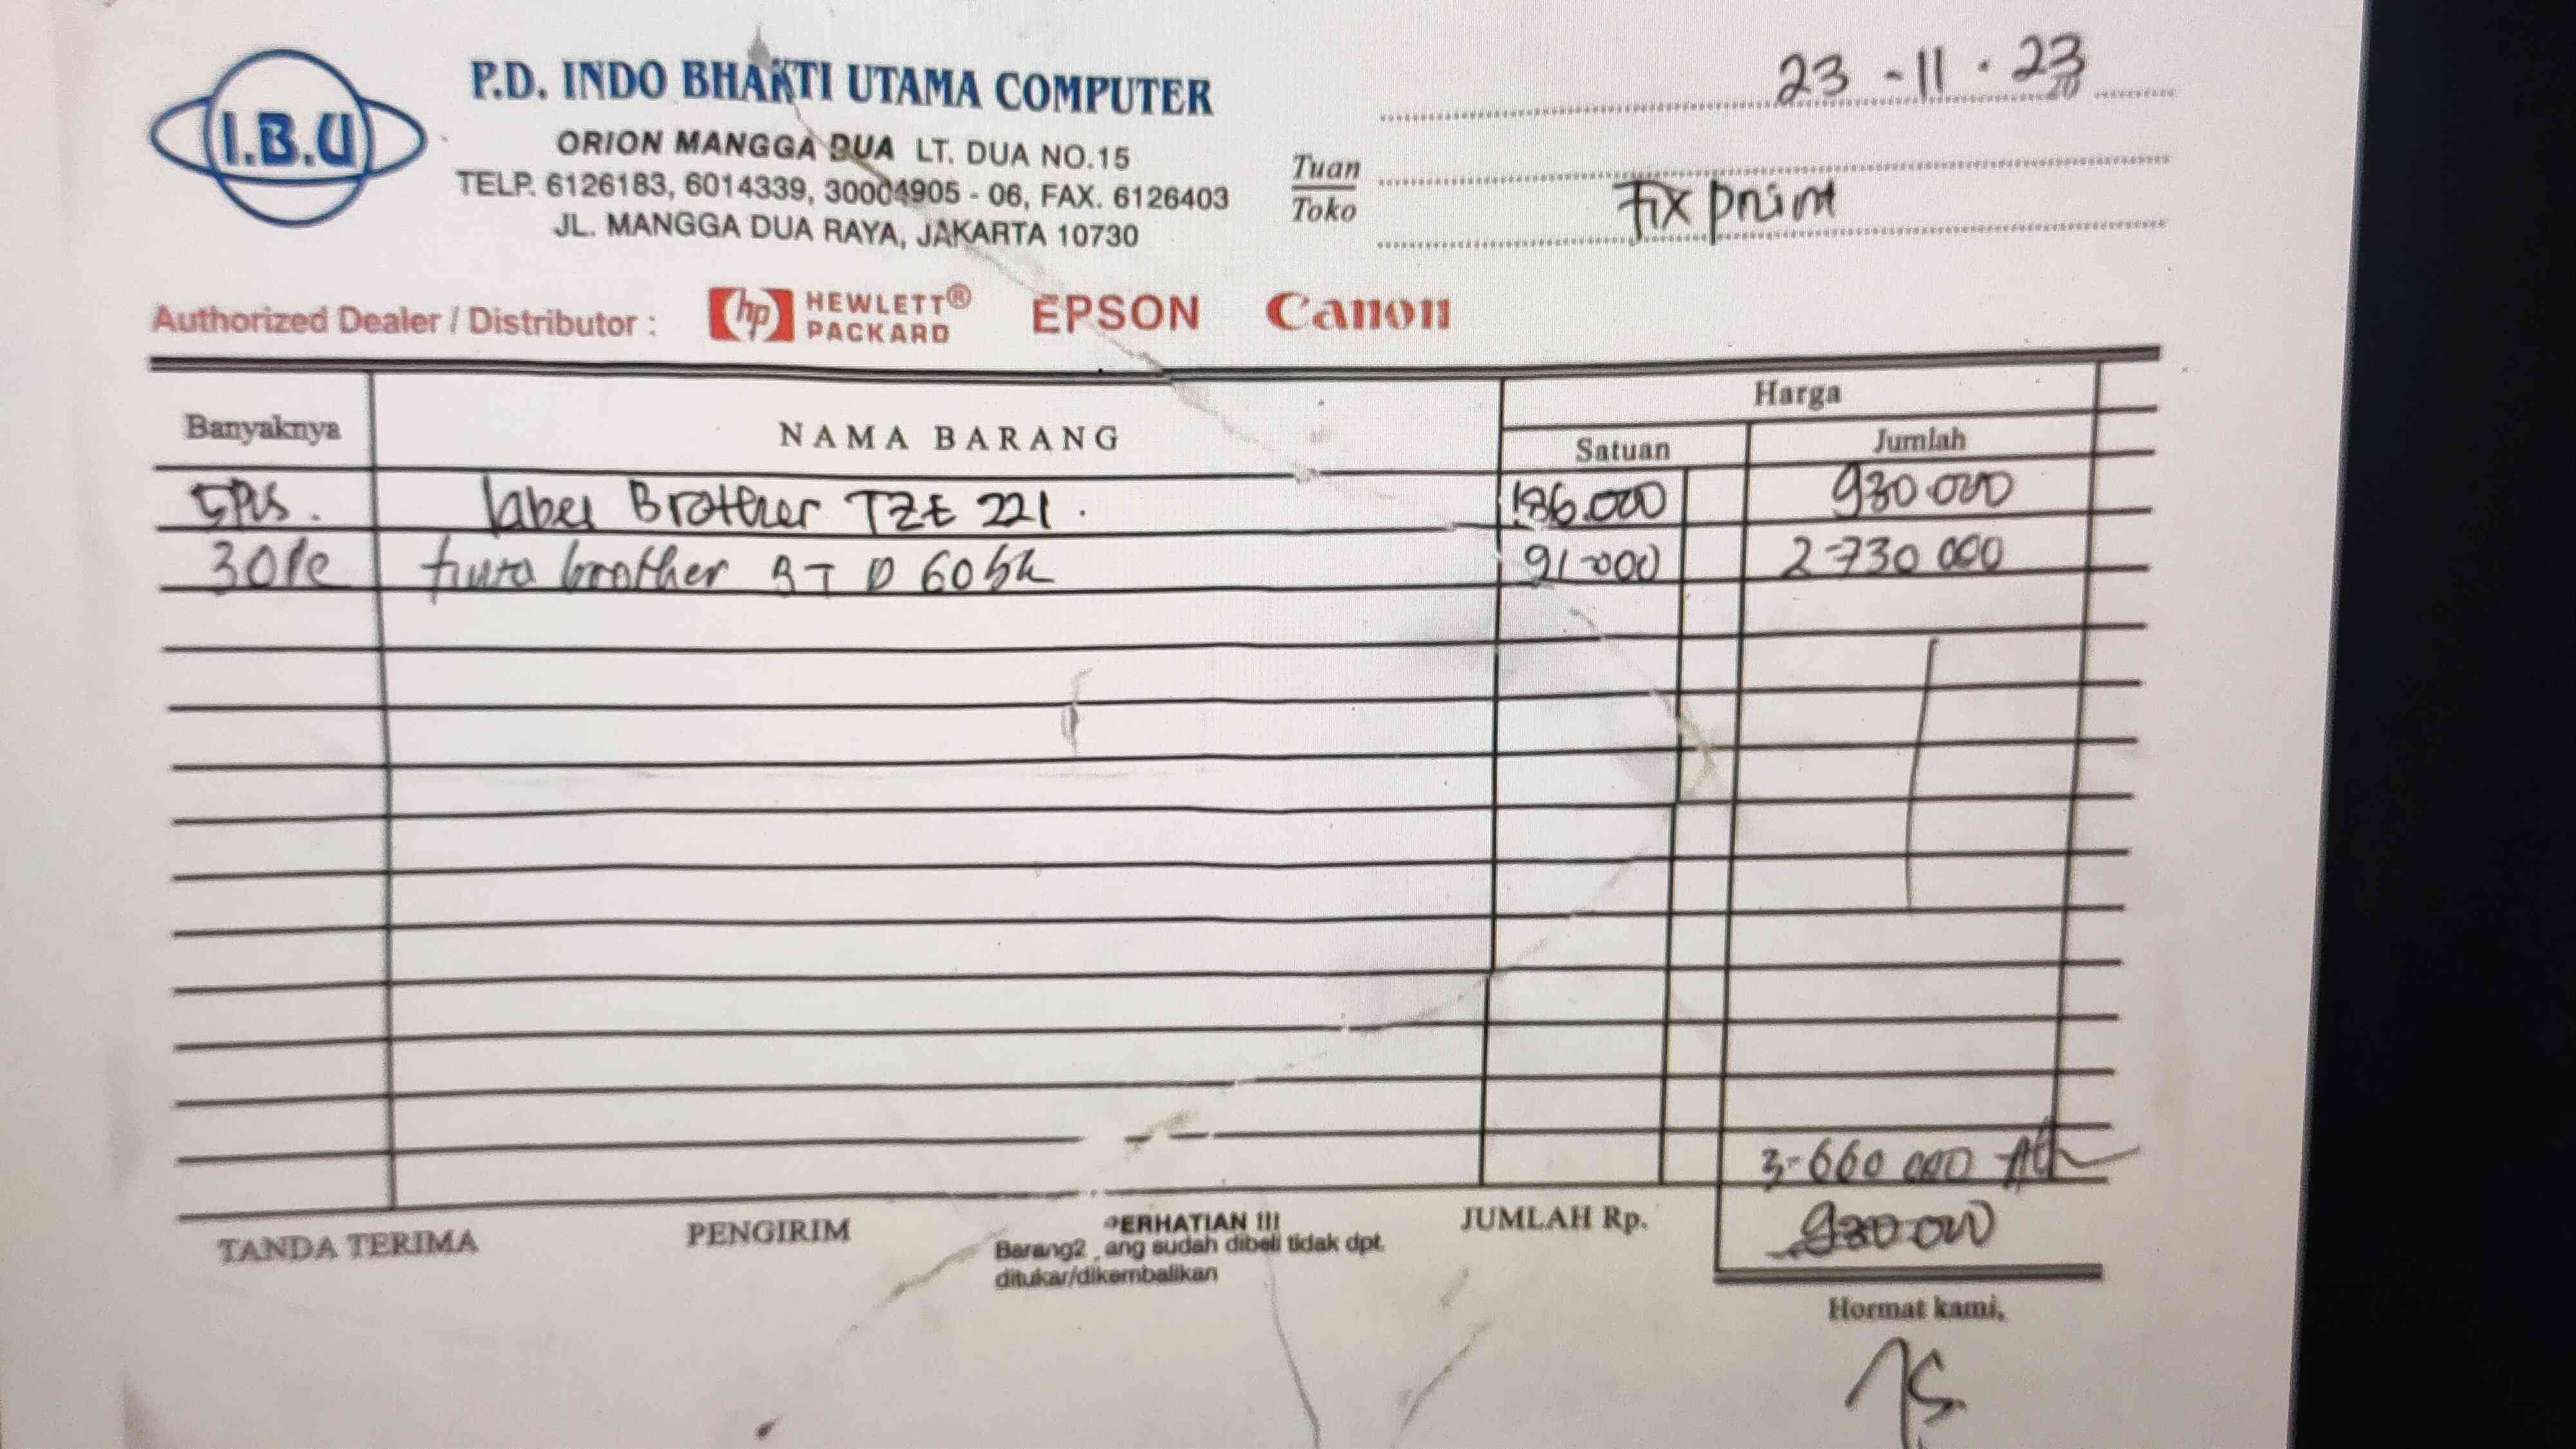 I.B.U
P.D. INDO BHAKTI UTAMA COMPUTER
ORION MANGGA DUA LT. DUA NO.15
TELP. 6126183, 6014339, 30004905 - 06, FAX. 6126403
JL. MANGGA DUA RAYA, JAKARTA 10730
23 - 11 - 23
Tuan
Toko
Fix print
Authorized Dealer / Distributor : hp HEWLETT® PACKARD EPSON Canon
Banyaknya NAMA BARANG Harga
Satuan Jumlah
5 Pcs. label Brother TZE 221. 186.000 930.000
30 Pc brother BT D 60 bk 91.000 2.730.000
3.660.000
TANDA TERIMA PENGIRIM PERHATIAN !!! JUMLAH Rp. 930.000
Barang2 ang sudah dibeli tidak dpt.
ditukar/dikembalikan
Hormat kami,